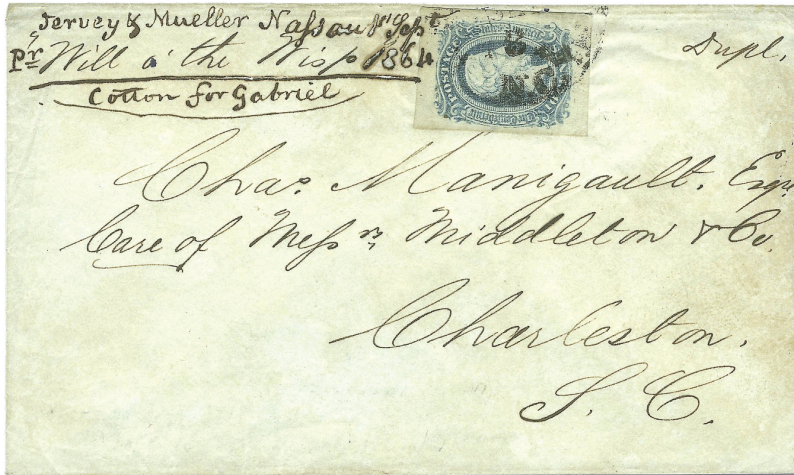 Jervey & Mueller Nassau 1st Sept
Pr Will o' the Wisp 1864
Cotton for Gabriel
Dupl.
Chas. Manigault. Esqr
Care of Messrs Middleton & Co.
Charleston.
S. C.
POSTAGE
N.C.